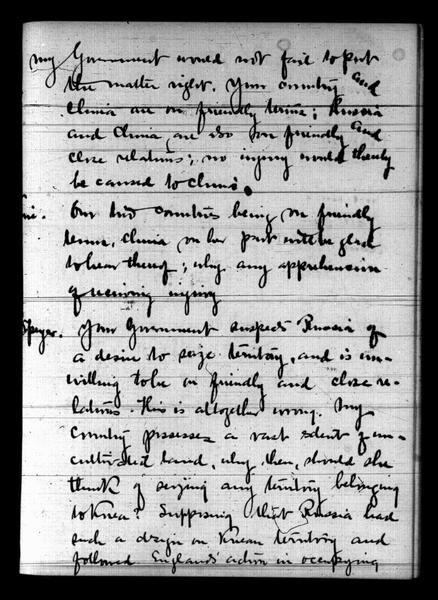 my Government would not fail to put
the matter right. Your country and
China are on friendly terms; Russia
and China are also on friendly and
close relations; no injury would thereby
be caused to China.
Our two countries being on friendly
terms, China on her part will be glad
to hear thereof; why any apprehension
of receiving injury
Speyer. Your Government suspects Russia of
a desire to seize territory, and is un-
willing to be on friendly and close re-
lations. This is altogether wrong. My
Country possesses a vast extent of un-
cultivated land, why, then, should she
think of seizing any territory belonging
to Korea? Supposing that Russia had
such a design on Korean territory and
followed England's action in occupying